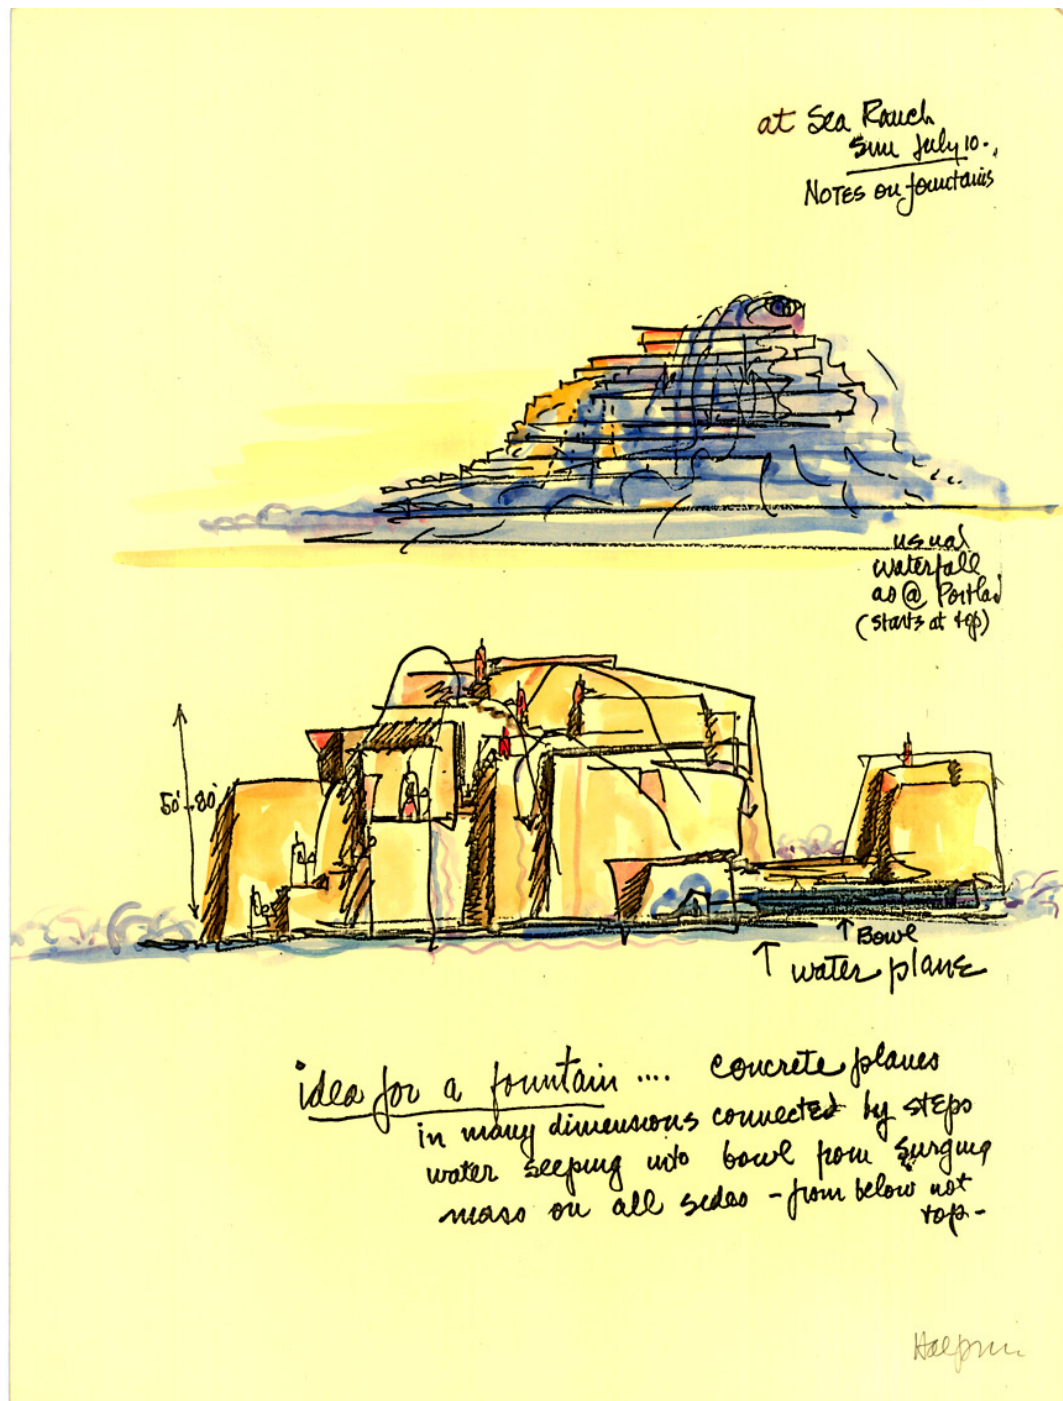 at Sea Ranch
Sun July 10.
NOTES on fountains
usual
waterfall
as @ Portland
(starts at top)
50'-80'
↑ Bowl
↑ water plane
idea for a fountain .... concrete planes
in many dimensions connected by steps
water seeping into bowl from surging
mass on all sides - from below not
top -
Halprin